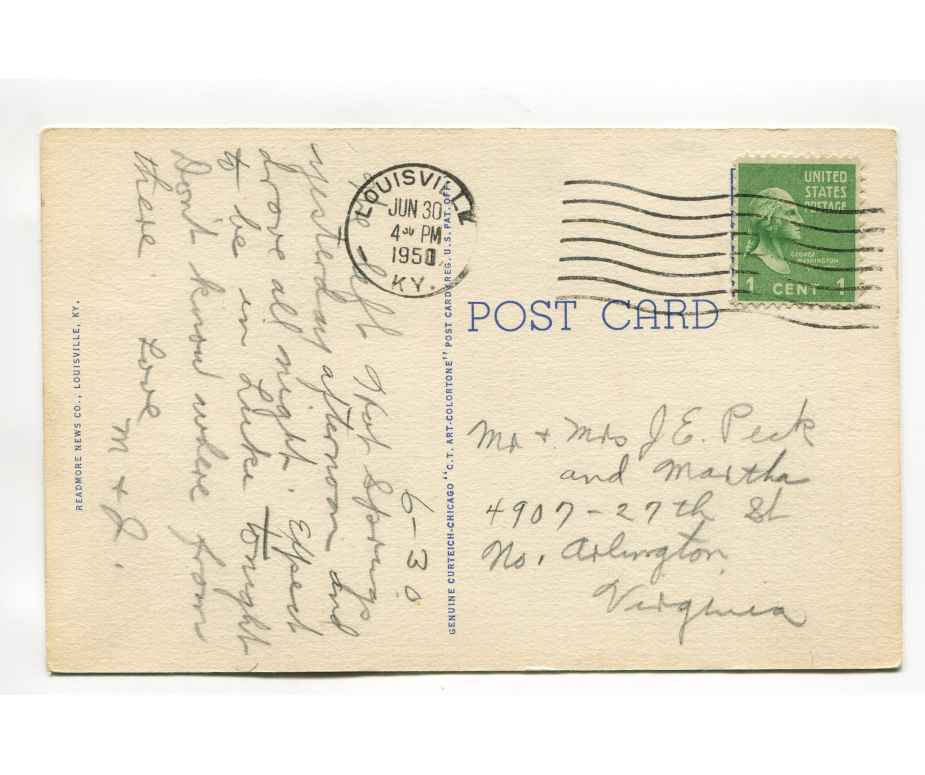 6-30
We left Hot Springs
yesterday afternoon and
drove all night. Expect
to be in Luke tonight
Don't know where from
there. Love
M + J.
READMORE NEWS CO., LOUISVILLE, KY.
GENUINE CURTEICH-CHICAGO "C.T. ART-COLORTONE" POST CARD (REG. U.S. PAT. OFF.
LOUISVILLE
JUN 30
4 PM
1950
KY.
UNITED
STATES
POSTAGE
GEORGE
WASHINGTON
1 CENT 1
POST CARD
Mr + Mrs J E. Peck
and Martha
4907-27th St
No. Arlington
Virginia